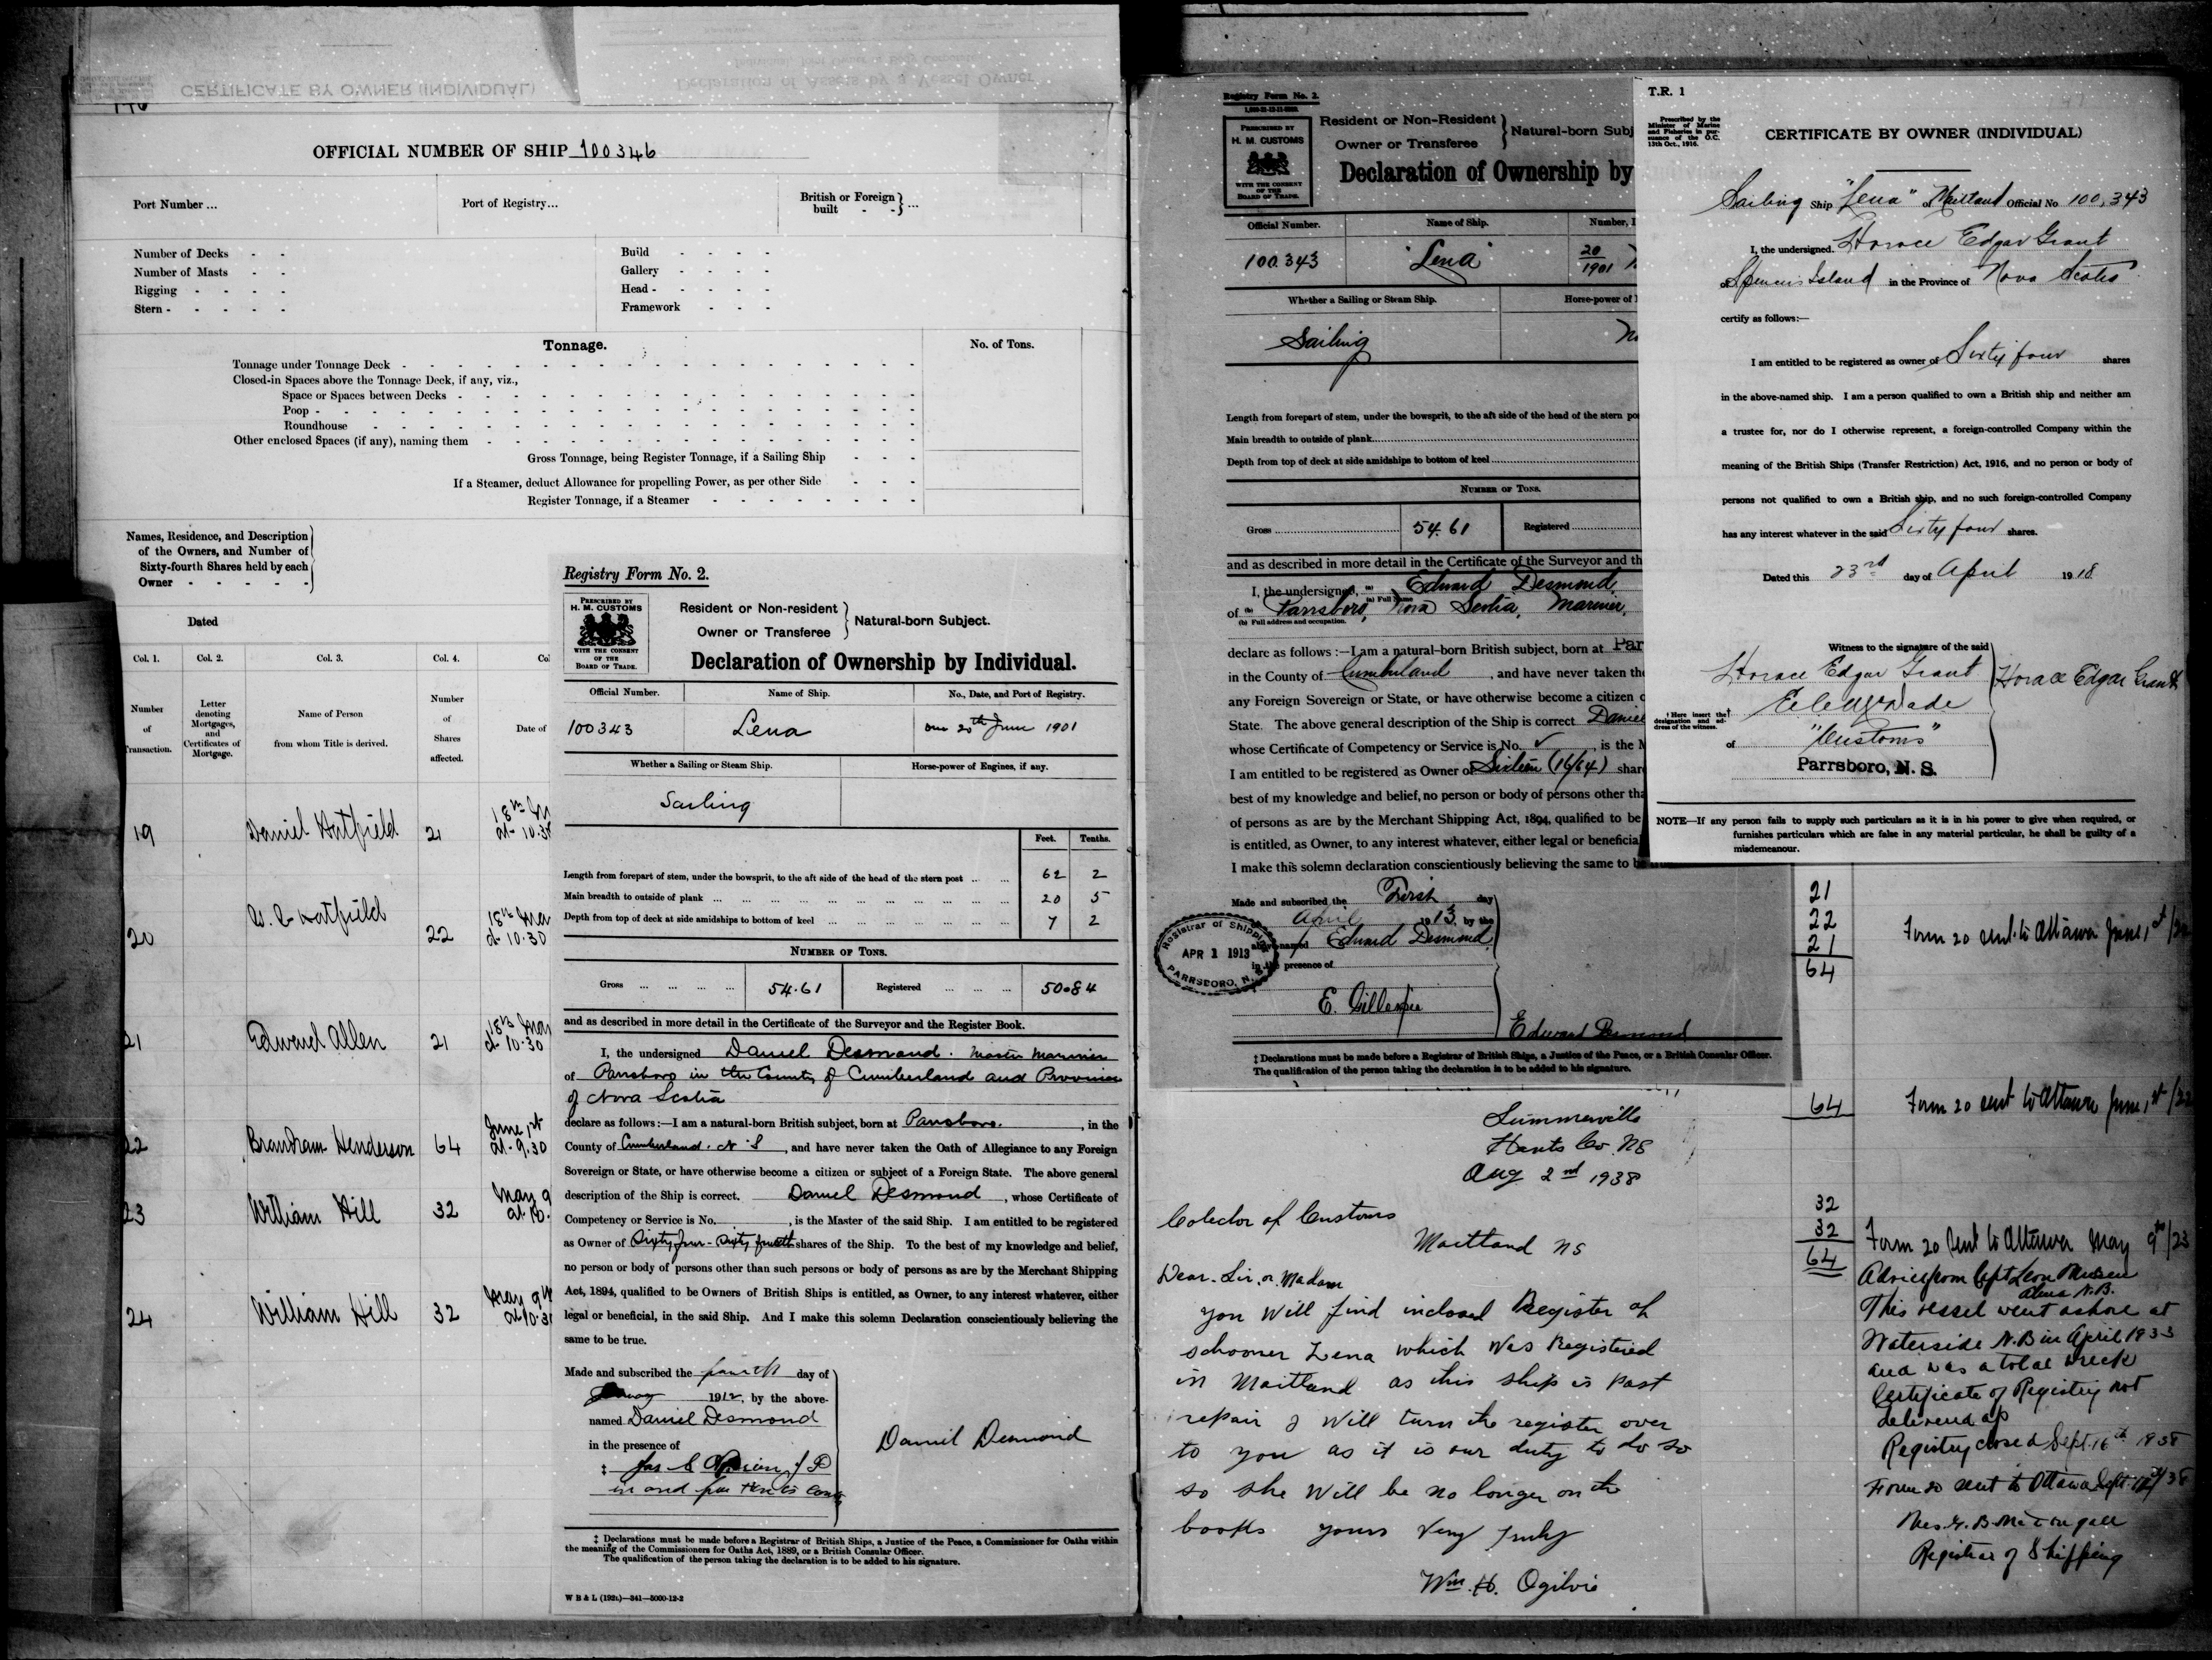 CERTIFICATE BY OWNER (INDIVIDUAL)
Declaration of Assets by a Vessel Owner
OFFICIAL NUMBER OF SHIP 100346
Port Number ...
Port of Registry...
British or Foreign built - - } ...
Number of Decks - -
Number of Masts - -
Rigging - - - -
Stern - - - - -
Build - - - -
Gallery - - - -
Head - - - - -
Framework - - -
Tonnage.
No. of Tons.
Tonnage under Tonnage Deck
Closed-in Spaces above the Tonnage Deck, if any, viz.,
Space or Spaces between Decks
Poop
Roundhouse
Other enclosed Spaces (if any), naming them
Gross Tonnage, being Register Tonnage, if a Sailing Ship
If a Steamer, deduct Allowance for propelling Power, as per other Side
Register Tonnage, if a Steamer
Names, Residence, and Description
of the Owners, and Number of
Sixty-fourth Shares held by each
Owner - - - - -
Dated
Col. 1. Col. 2. Col. 3. Col. 4.
Number of Transaction.
Letter denoting Mortgages, and Certificates of Mortgage.
Name of Person from whom Title is derived.
Number of Shares affected.
Date of
19 Daniel Hatfield 21 18th at 10.30
20 Hatfield 22 18th Mar at 10.30
21 Edward Allen 21 18th Mar at 10.30
22 Henderson 64 June 1st at 9.30
23 William Hill 32 May 9 at 10.
24 William Hill 32 May 9th at 10.30
Registry Form No. 2.
PRESCRIBED BY
H. M. CUSTOMS
WITH THE CONSENT
OF THE
BOARD OF TRADE.
Resident or Non-resident
Owner or Transferee
} Natural-born Subject.
Declaration of Ownership by Individual.
Official Number. Name of Ship. No., Date, and Port of Registry.
100343 Lena 20th June 1901
Whether a Sailing or Steam Ship. Horse-power of Engines, if any.
Sailing
Feet. Tenths.
Length from forepart of stem, under the bowsprit, to the aft side of the head of the stern post ... 62 2
Main breadth to outside of plank ... 20 5
Depth from top of deck at side amidships to bottom of keel ... 7 2
NUMBER OF TONS.
Gross ... 54.61 Registered ... 50.84
and as described in more detail in the Certificate of the Surveyor and the Register Book.
I, the undersigned Daniel Desmond. Master Mariner
of Parrsboro in the County of Cumberland and Province
of Nova Scotia
declare as follows:—I am a natural-born British subject, born at Parrsboro. , in the
County of Cumberland. N S , and have never taken the Oath of Allegiance to any Foreign
Sovereign or State, or have otherwise become a citizen or subject of a Foreign State. The above general
description of the Ship is correct. Daniel Desmond , whose Certificate of
Competency or Service is No. , is the Master of the said Ship. I am entitled to be registered
as Owner of Sixty four - Sixty fourth shares of the Ship. To the best of my knowledge and belief,
no person or body of persons other than such persons or body of persons as are by the Merchant Shipping
Act, 1894, qualified to be Owners of British Ships is entitled, as Owner, to any interest whatever, either
legal or beneficial, in the said Ship. And I make this solemn Declaration conscientiously believing the
same to be true.
Made and subscribed the fourth day of
1912, by the above-
named Daniel Desmond
in the presence of
‡ Jas J P
in and for Hants County
Daniel Desmond
‡ Declarations must be made before a Registrar of British Ships, a Justice of the Peace, a Commissioner for Oaths within
the meaning of the Commissioners for Oaths Act, 1889, or a British Consular Officer.
The qualification of the person taking the declaration is to be added to his signature.
W B & L (192t.)—341—5000-12-2
Registry Form No. 2.
PRESCRIBED BY
H. M. CUSTOMS
WITH THE CONSENT
OF THE
BOARD OF TRADE.
Resident or Non-Resident
Owner or Transferee
} Natural-born Subj
Declaration of Ownership by
Official Number. Name of Ship. Number,
100.343 "Lena" 20/1901
Whether a Sailing or Steam Ship. Horse-power of
Sailing
Length from forepart of stem, under the bowsprit, to the aft side of the head of the stern po
Main breadth to outside of plank
Depth from top of deck at side amidships to bottom of keel
NUMBER OF TONS.
Gross 54.61 Registered
and as described in more detail in the Certificate of the Surveyor and th
I, the undersigned, (a) Edward Desmond,
(a) Full Name
of (b) Parrsboro, Nova Scotia, Mariner,
(b) Full address and occupation.
declare as follows :—I am a natural-born British subject, born at Par
in the County of Cumberland , and have never taken the
any Foreign Sovereign or State, or have otherwise become a citizen o
State. The above general description of the Ship is correct Daniel
whose Certificate of Competency or Service is No. ✓ , is the M
I am entitled to be registered as Owner of Sixteen (16/64) shar
best of my knowledge and belief, no person or body of persons other tha
of persons as are by the Merchant Shipping Act, 1894, qualified to be
is entitled, as Owner, to any interest whatever, either legal or beneficia
I make this solemn declaration conscientiously believing the same to be
Made and subscribed the First day
April 1913 by the
above-named Edward Desmond
in the presence of
E. Gillespie
Edward Desmond
Registrar of Shipping
APR 1 1913
PARRSBORO, N.S.
‡ Declarations must be made before a Registrar of British Ships, a Justice of the Peace, or a British Consular Officer.
The qualification of the person taking the declaration is to be added to his signature.
T.R. 1
Prescribed by the
Minister of Marine
and Fisheries in pur-
suance of the O.C.
13th Oct., 1916.
CERTIFICATE BY OWNER (INDIVIDUAL)
Sailing Ship "Lena" of Maitland Official No 100,343
I, the undersigned. Horace Edgar Grant
of Spencers Island in the Province of Nova Scotia
certify as follows:—
I am entitled to be registered as owner of Sixty four shares
in the above-named ship. I am a person qualified to own a British ship and neither am
a trustee for, nor do I otherwise represent, a foreign-controlled Company within the
meaning of the British Ships (Transfer Restriction) Act, 1916, and no person or body of
persons not qualified to own a British ship, and no such foreign-controlled Company
has any interest whatever in the said Sixty four shares.
Dated this 23rd day of April 1918
Witness to the signature of the said
Horace Edgar Grant
Horace Edgar Grant
† Here insert the designation and ad-
dress of the witness.
of "Customs"
Parrsboro, N. S.
NOTE—If any person fails to supply such particulars as it is in his power to give when required, or
furnishes particulars which are false in any material particular, he shall be guilty of a
misdemeanour.
Summerville
Hants Co. NS
Aug 2nd 1938
Colector of Customs
Maitland NS
Dear Sir, or Madam
you will find inclosed Register of
schooner Lena which was Registered
in Maitland as this ship is past
repair I will turn the register over
to you as it is our duty to do so
so she will be no longer on the
books yours very truly
Wm. H. Ogilvie
21
22
21
64
Form 20 sent to Ottawa June 1st/22
64
Form 20 sent to Ottawa June 1st/22
32
32
64
Form 20 sent to Ottawa May 9th/23
Advice from Capt Leon
Alma N.B.
This vessel went ashore at
Waterside N.B in April 1933
and was a total wreck
Certificate of Registry not
delivered up
Registry closed Sept. 16th 1938
Form 20 sent to Ottawa Sept. /38
Registrar of Shipping